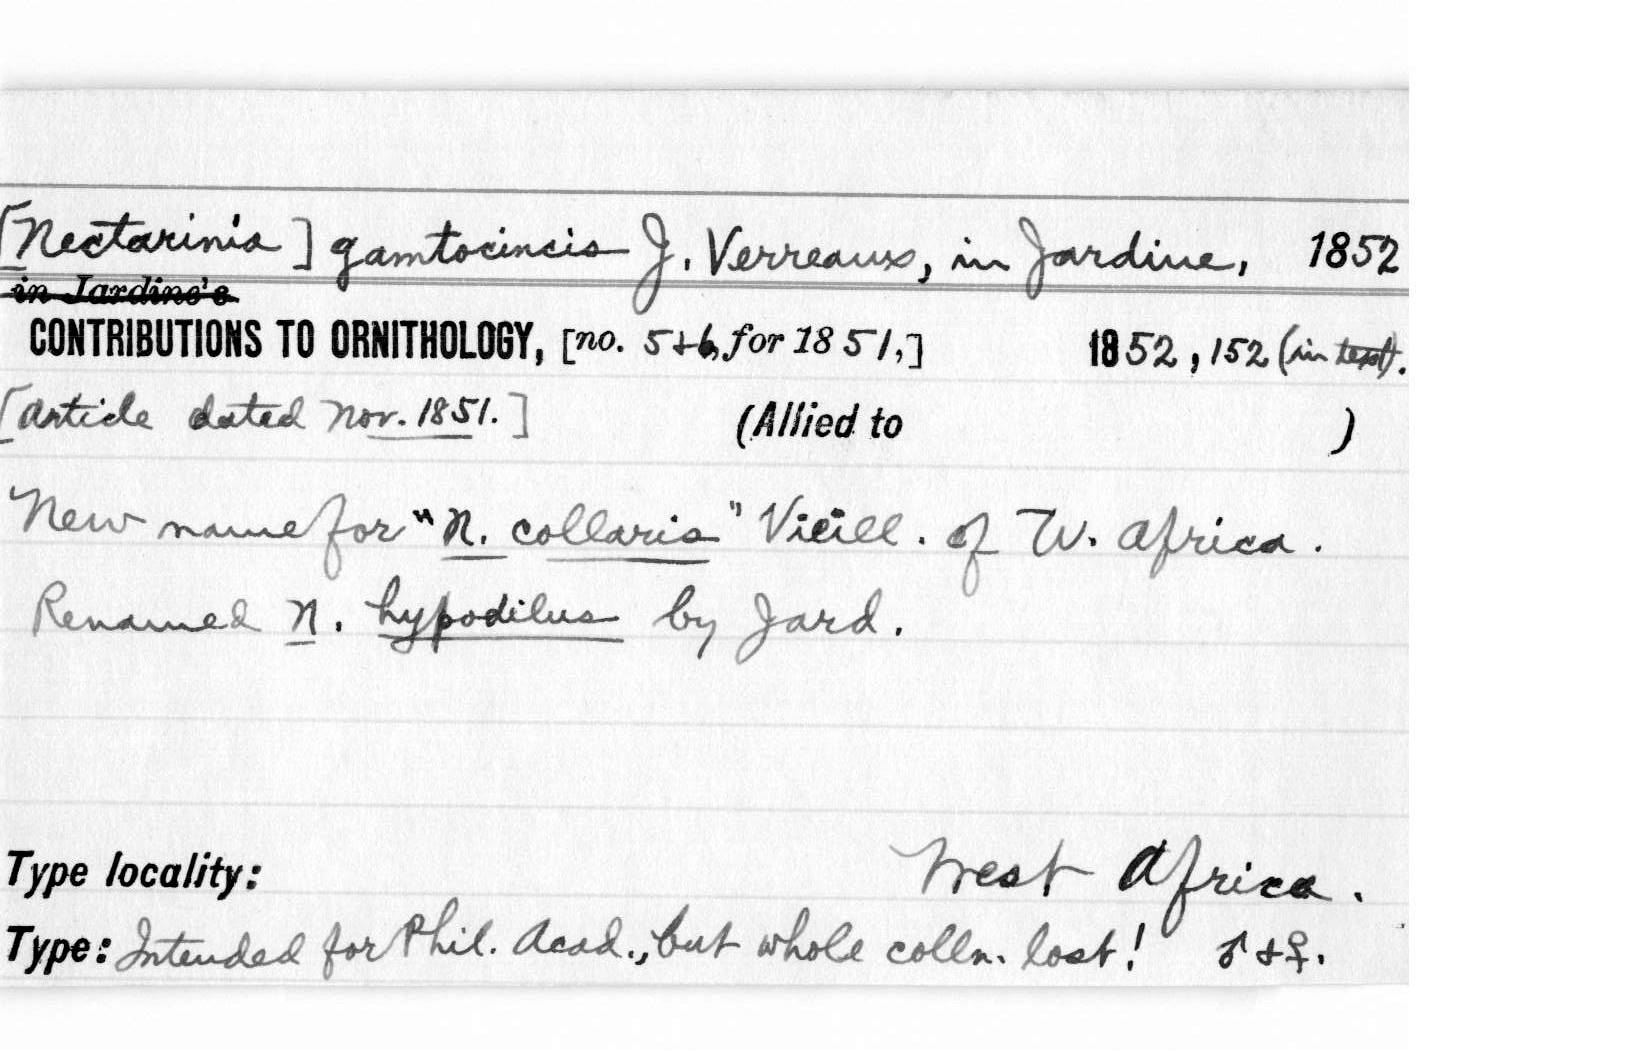 [Nectarinia] gamtocincis J. Verreaux, in Jardine, 1852
in Jardine's
CONTRIBUTIONS TO ORNITHOLOGY, [no. 5+6, for 1851,] 1852, 152 (in text).
[Article dated Nov. 1851.] (Allied to )
New name for "N. collaris" Vieill. of W. Africa.
Renamed N. hypodilus by Jard.
Type locality: West Africa.
Type: Intended for Phil. Acad., but whole colln. lost! ♂ + ♀.